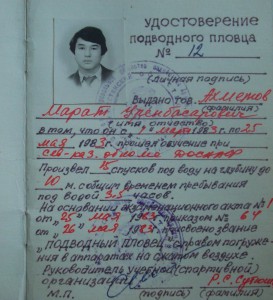 УДОСТОВЕРЕНИЕ
ПОДВОДНОГО ПЛОВЦА
№ 12
(личная подпись)
Выдано тов. Ахметов
(фамилия)
Марат
(имя, отчество)
в том, что он с 1983 г. по 25
мая 1983 г. прошел обучение при
ДОСААФ
Произвел 25 спусков под воду на глубину до
10 м. с общим временем пребывания
под водой 3-5 часов.
На основании акта № 1
от „25" мая 1983 приказом № 64
от „26" мая 1983 присвоено звание
„ПОДВОДНЫЙ ПЛОВЕЦ" с правом погруже-
ния в аппаратах на сжатом воздухе.
Руководитель учебной (спортивной)
организации
М.П. (подпись) (фамилия)